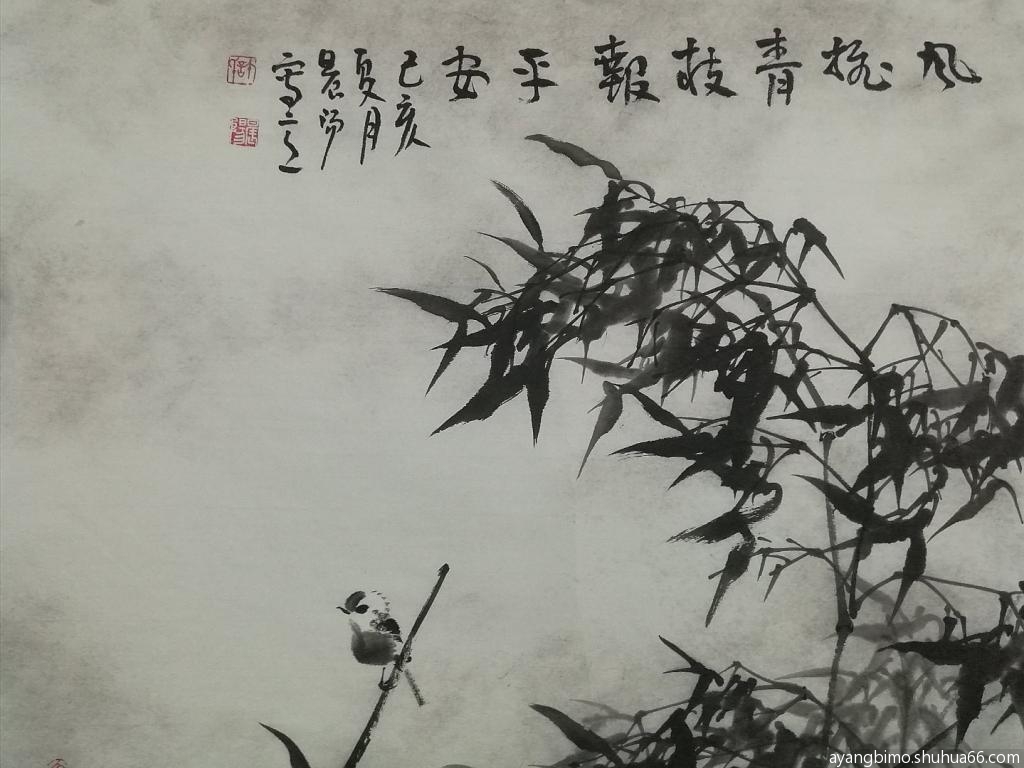 風搖青枝報平安
己亥
夏月
晨陽
寫之
ayangbimo.shuhua66.com